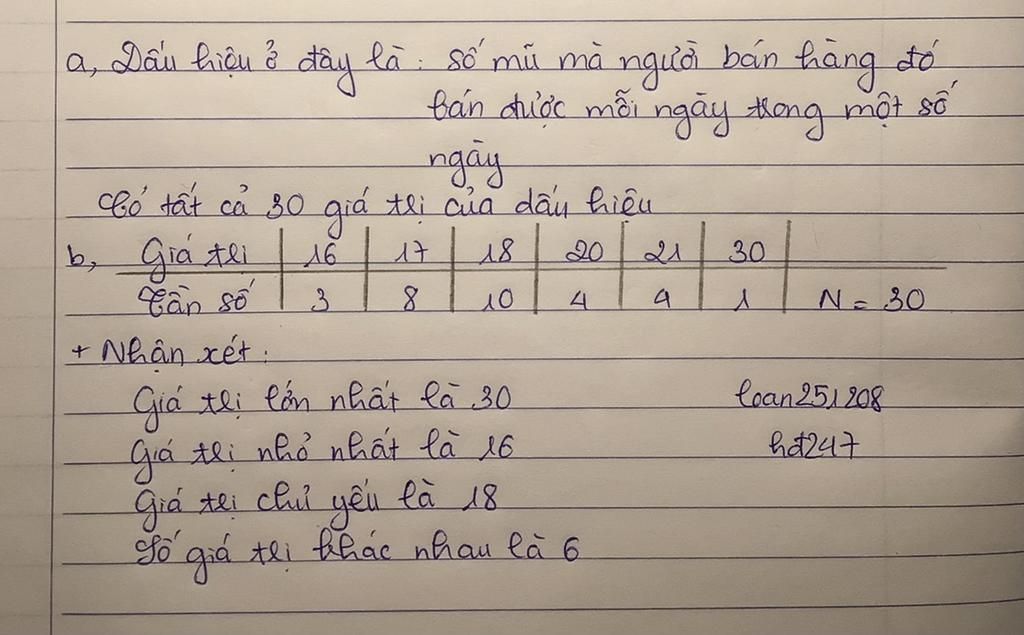 a, Dấu hiệu ở đây là: số mũ mà người bán hàng đó
bán được mỗi ngày trong một số
ngày
Có tất cả 30 giá trị của dấu hiệu
b, Giá trị 16 17 18 20 21 30
Tần số 3 8 10 4 4 1 N = 30
+ Nhận xét:
Giá trị lớn nhất là 30 loan251208
Giá trị nhỏ nhất là 16 hđ247
Giá trị chủ yếu là 18
Số giá trị khác nhau là 6